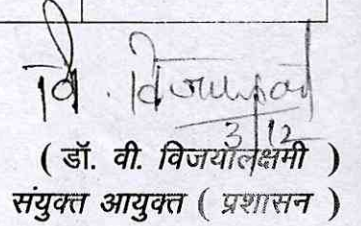 वि. विजयलक्ष्मी
3/12
( डॉ. वी. विजयालक्ष्मी )
संयुक्त आयुक्त ( प्रशासन )